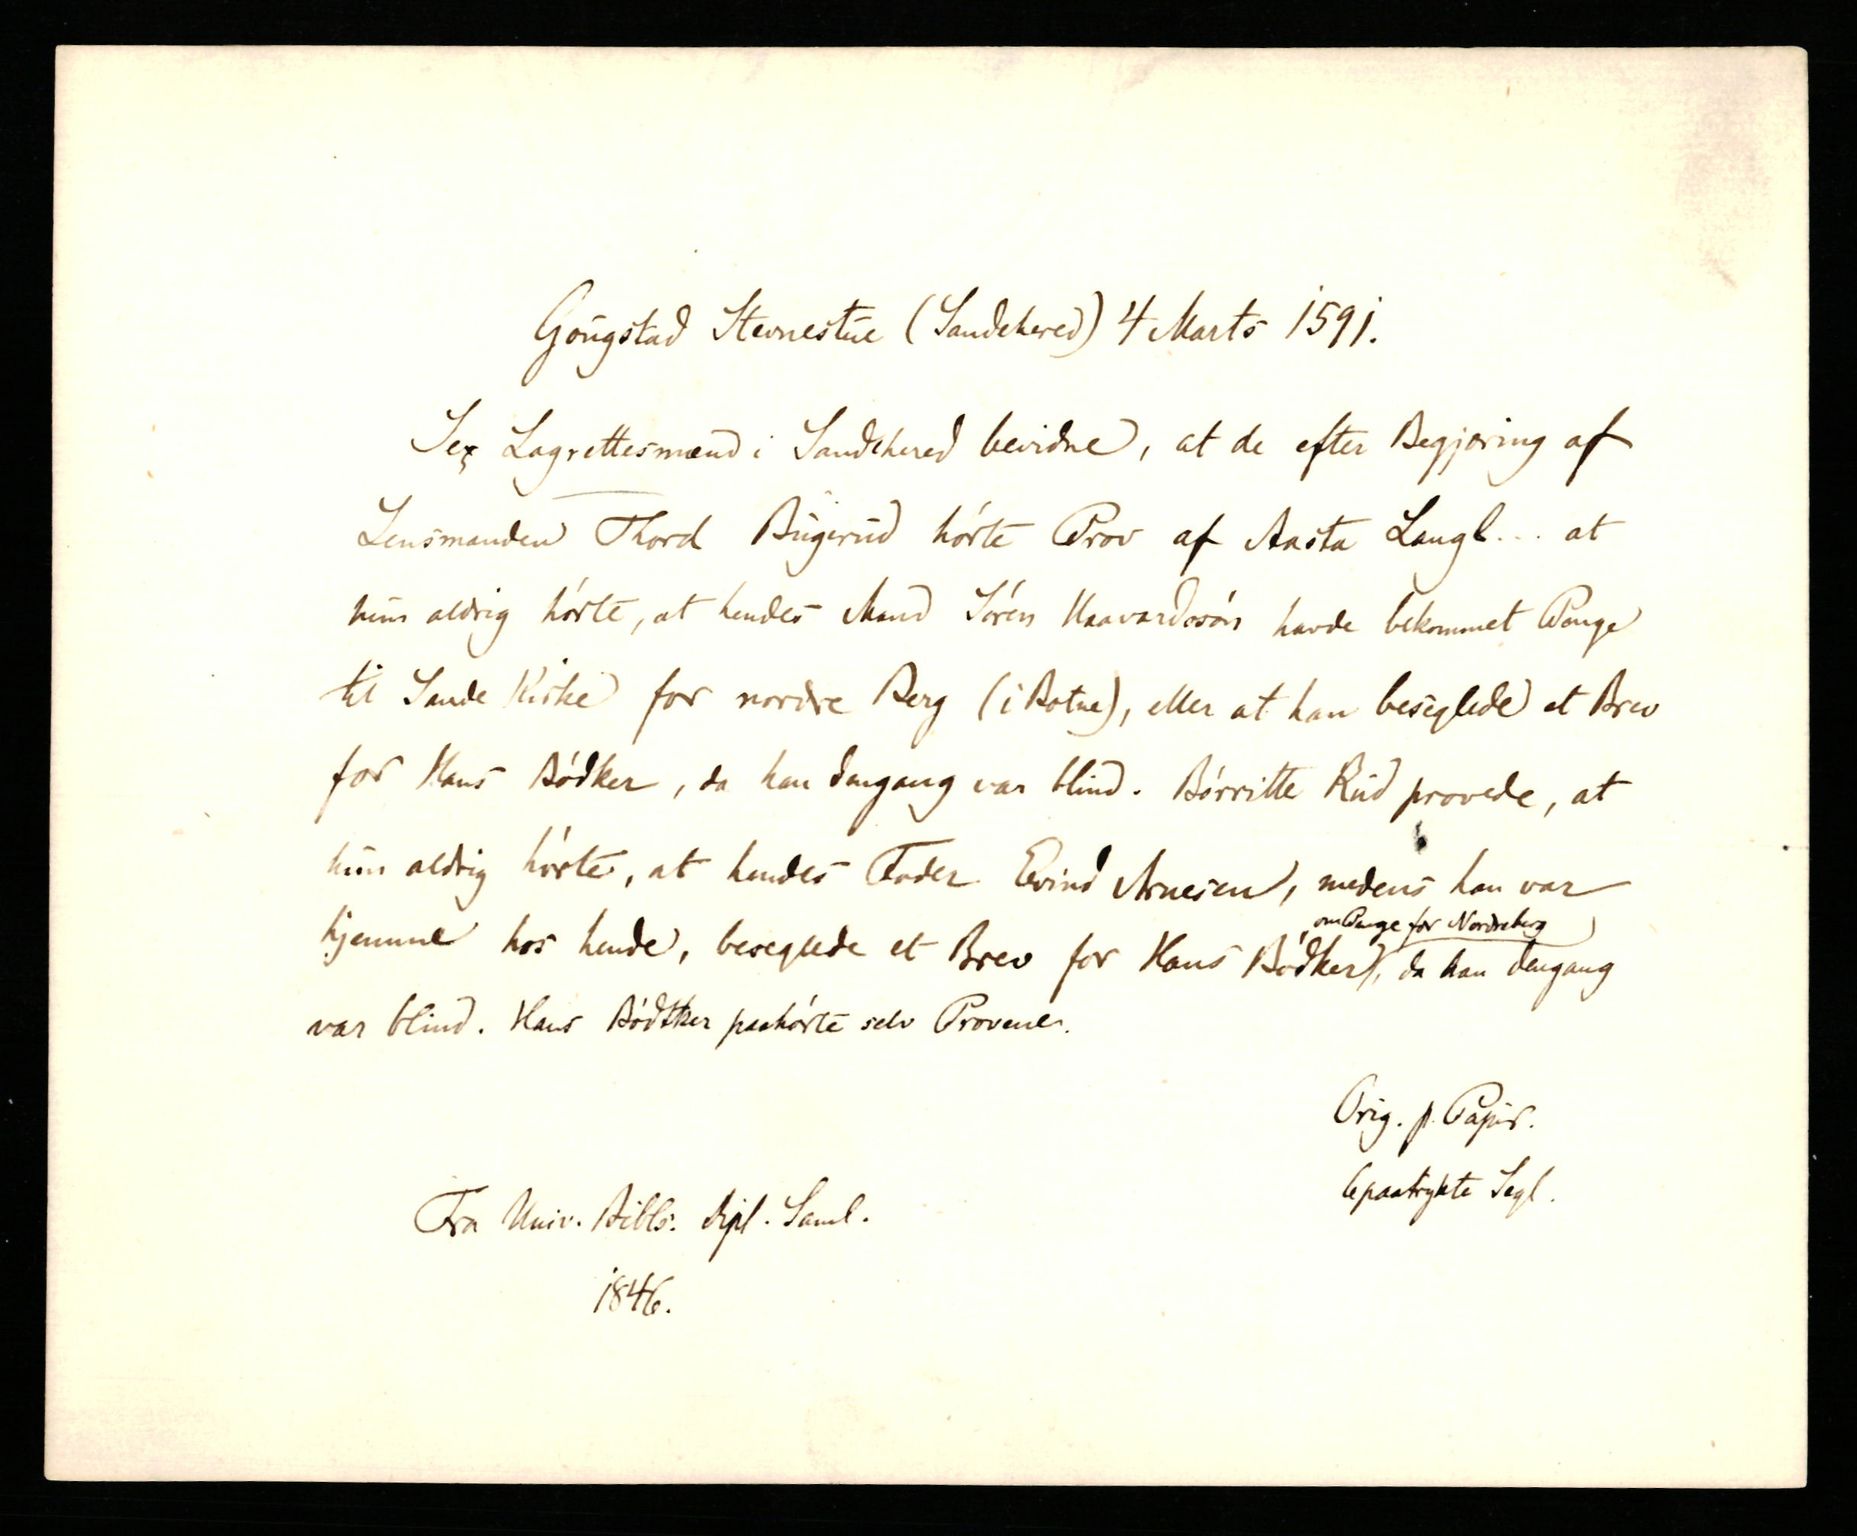 Gougstad Stevnestue (Sandehered) 4 Marts 1591.
Sex Lagrettesmænd i Sandehered bevidne, at de efter Begjæring af
Lensmanden Thord Bugerud hørte Prov af Aasta Laugl... at
hun aldrig hørte, at hendes Mand Søren Haavardssøn havde bekommet Penge
til Sande Kirke for nordre Berg (i Botne), eller at han beseglede et Brev
for Hans Bødker, da han dengang var blind. Børritte Rud provede, at
hun aldrig hørte, at hendes Fader Evind Arnesen, medens han var
hjemme hos hende, beseglede et Brev for Hans Bødker, om Penge for Nordreberg, da han dengang
var blind. Hans Bødtker paahørte selv Provene.
Orig. p. Papir.
6 paatrykte Segl.
Fra Univ. Bibls. dipl. Saml.
1846.